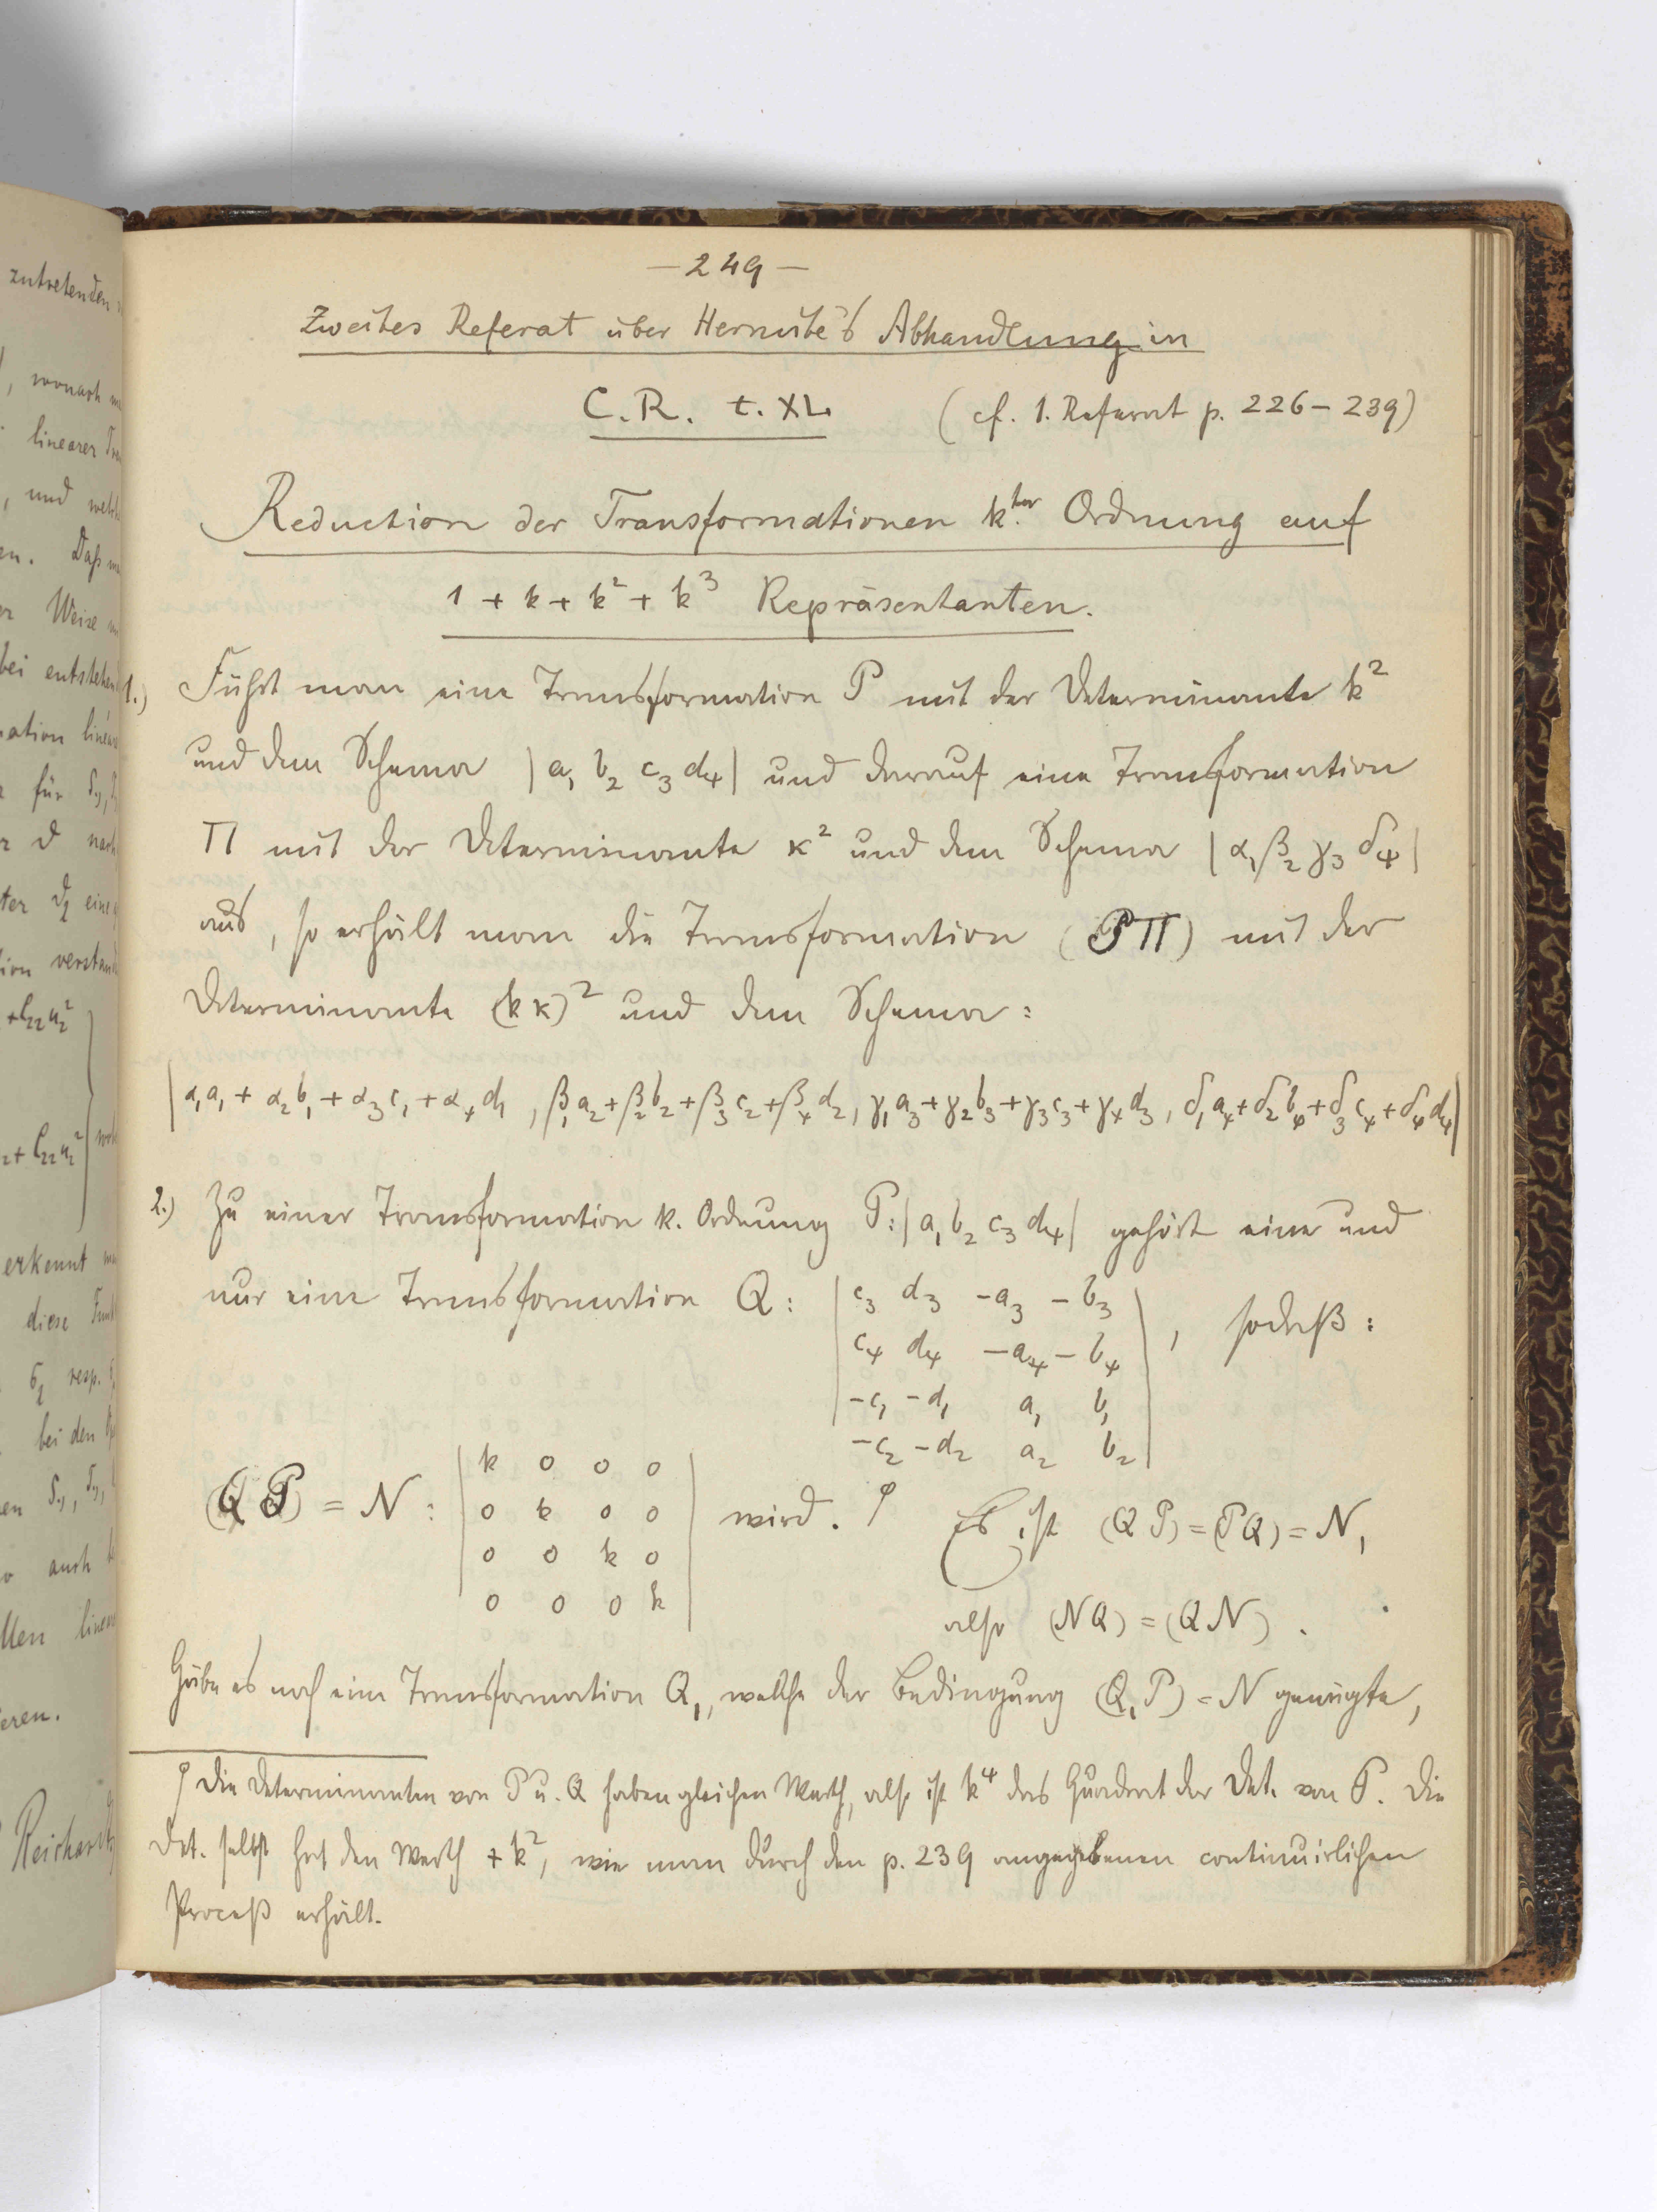 zutretenden
, wonach
linearer
, und
en. Daß
Weise
bei entstehen
ation linear
für
nach
ter eine
ion verstand
erkennt
diese
resp.
bei den
auch
llen linea
eren.
Reichardt
— 249 —
Zweites Referat über Hermite's Abhandlung in
C. R. t. XL. (cf. 1. Referat p. 226 – 239)
Reduction der Transformationen k.ter Ordnung auf
1 + k + k² + k³ Repräsentanten.
1.) Führt man eine Transformation P mit der Determinante k²
und dem Schema |a₁ b₂ c₃ d₄| und darauf eine Transformation
Π mit der Determinante ϰ² und dem Schema |α₁ β₂ γ₃ δ₄|
aus, so erhält man die Transformation (PΠ) mit der
Determinante (kϰ)² und dem Schema:
|α₁a₁ + α₂b₁ + α₃c₁ + α₄d₁, β₁a₂ + β₂b₂ + β₃c₂ + β₄d₂, γ₁a₃ + γ₂b₃ + γ₃c₃ + γ₄d₃, δ₁a₄ + δ₂b₄ + δ₃c₄ + δ₄d₄|
2.) Zu einer Transformation k. Ordnung P: |a₁ b₂ c₃ d₄| gehört eine und
nur eine Transformation Q: | c₃ d₃ –a₃ –b₃ | , sodaß:
| c₄ d₄ –a₄ –b₄ |
| –c₁ –d₁ a₁ b₁ |
| –c₂ –d₂ a₂ b₂ |
| k 0 0 0 |
(QP) = N: | 0 k 0 0 | wird. φ Es ist (QP) = (PQ) = N,
| 0 0 k 0 |
| 0 0 0 k |
also (NQ) = (QN).
Gäbe es noch eine Transformation Q₁, welche der Bedingung (Q₁P) = N genügte,
φ Die Determinanten von P u. Q haben gleichen Werth, also ist k⁴ das Quadrat der Det. von P. Die
Det. selbst hat den Werth + k², wie man durch den p. 239 angegebenen continuirlichen
Proceß erhält.